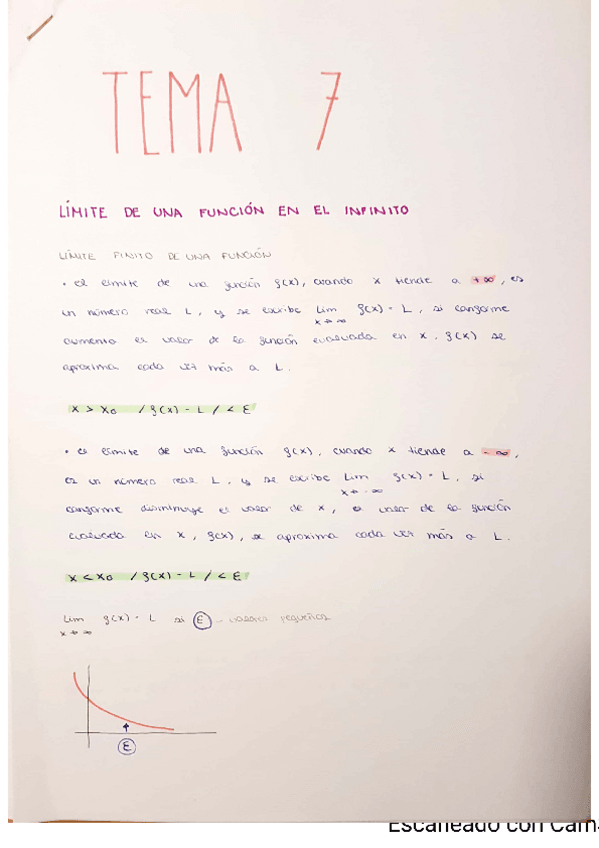 TEMA 7
LÍMITE DE UNA FUNCIÓN EN EL INFINITO
LÍMITE FINITO DE UNA FUNCIÓN
• el límite de una función f(x), cuando x tiende a +∞, es
un número real L, y se escribe Lim f(x) = L, si conforme
x→∞
aumenta el valor de la función evaluada en x, f(x) se
aproxima cada vez más a L.
x > x₀ /f(x) - L/ < ε
• el límite de una función f(x), cuando x tiende a -∞,
es un número real L, y se escribe Lim f(x) = L, si
x→-∞
conforme disminuye el valor de x, el valor de la función
evaluada en x, f(x), se aproxima cada vez más a L.
x < x₀ /f(x) - L/ < ε
Lim f(x) = L si ε → valores pequeños
x→∞
ε
Escaneado con Cam